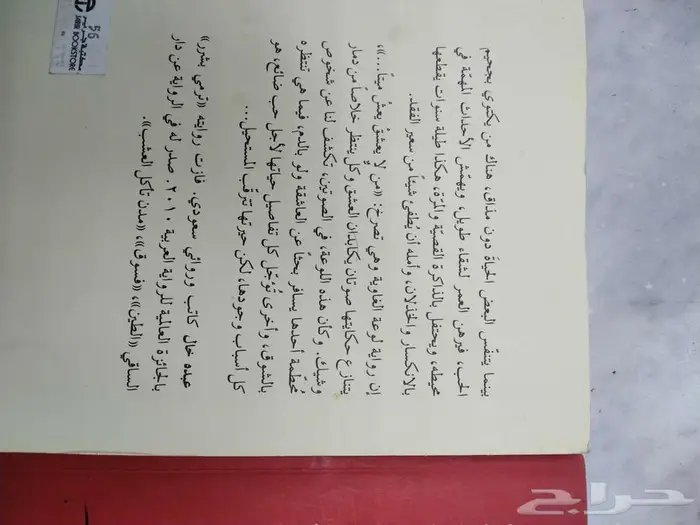 بينما يتنفّس البعض الحياةَ دون مذاق، هناك من يكتوي بجحيم
الحب، فيرهن العمر لشقاء طويل، ويهمّش الأحداث المهمّة في
محيطه، ويحتفل بالذاكرة القصيّة والمرّة، هكذا طيلة سنوات يقطعها
بالانكسار والخذلان، وأمله أن يُطفئ شيئاً من سعير الفقد.
إن رواية لوعة الغاوية وهي تصرخ: «من لا يعشقُ يعشُ ميتاً...»،
يتنازع حكايتها صوتان يكابدان العشق وكل ينتظر خلاصاً من دمار
وشيك. وكأن هذه اللوعة، في الصوتين، تكشف لنا عن شخوص
مُحطّمة أحدها يسافر بحثاً عن العاشقة ولو بالدم، فيما هي تنتظره
بالشوق، وأخرى تُؤجّل كل تفاصيل حياتها لأجل حب ضائع، هو
كل أسباب وجودها، لكن حيرتها تترقّب المستحيل...
عبده خال كاتب وروائي سعودي. فازت روايته «ترمي بشرر»
بالجائزة العالمية للرواية العربية ٢٠١٠. صدر له في الرواية عن دار
الساقي «الطين»، «فسوق»، «مدن تأكل العشب».
56
JARIR BOOKSTORE
حراج